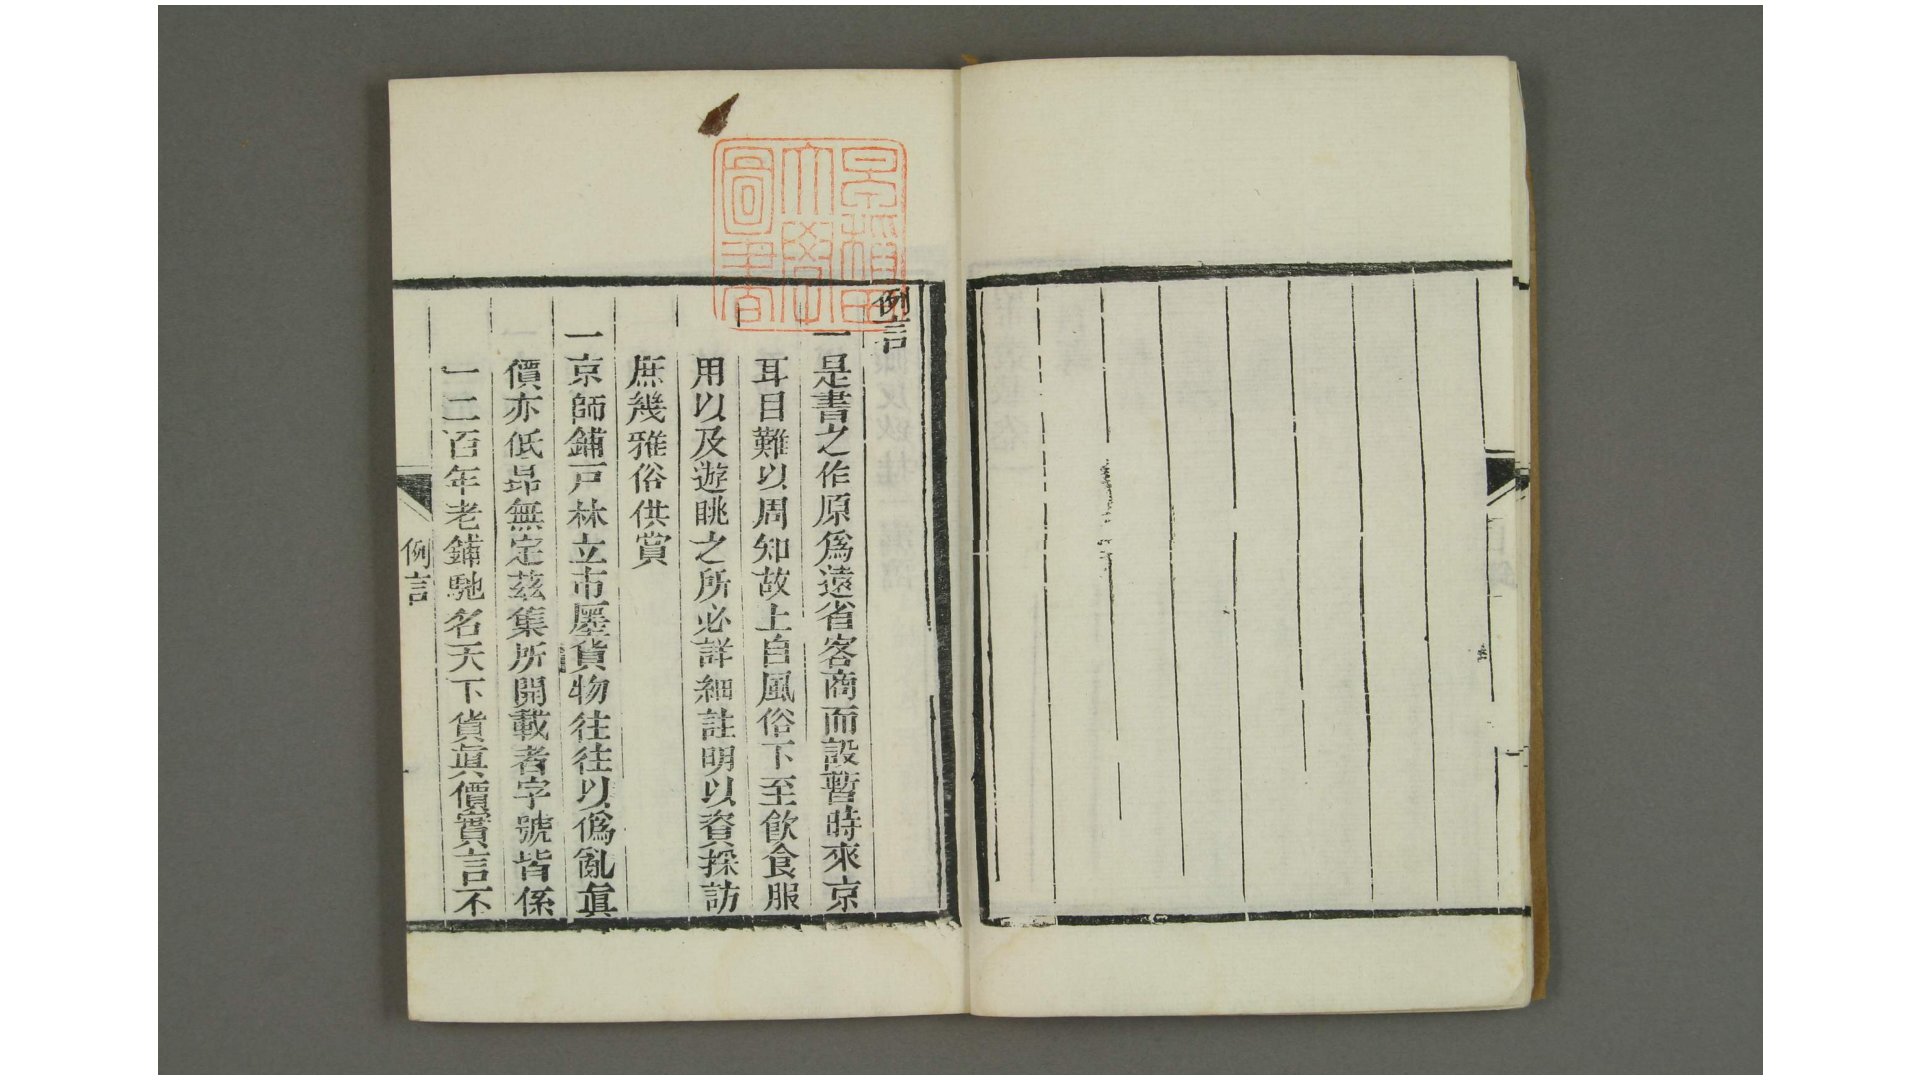 例言
一是書之作原爲遠省客商而設暫時來京
耳目難以周知故上自風俗下至飮食服
用以及遊眺之所必詳細註明以資採訪
庶幾雅俗供賞
一京師鋪戸林立市廛貨物往往以僞亂眞
價亦低昻無定茲集所開載者字號皆係
一二百年老鋪馳名天下貨眞價實言不
例言
早稲田
大學
圖書